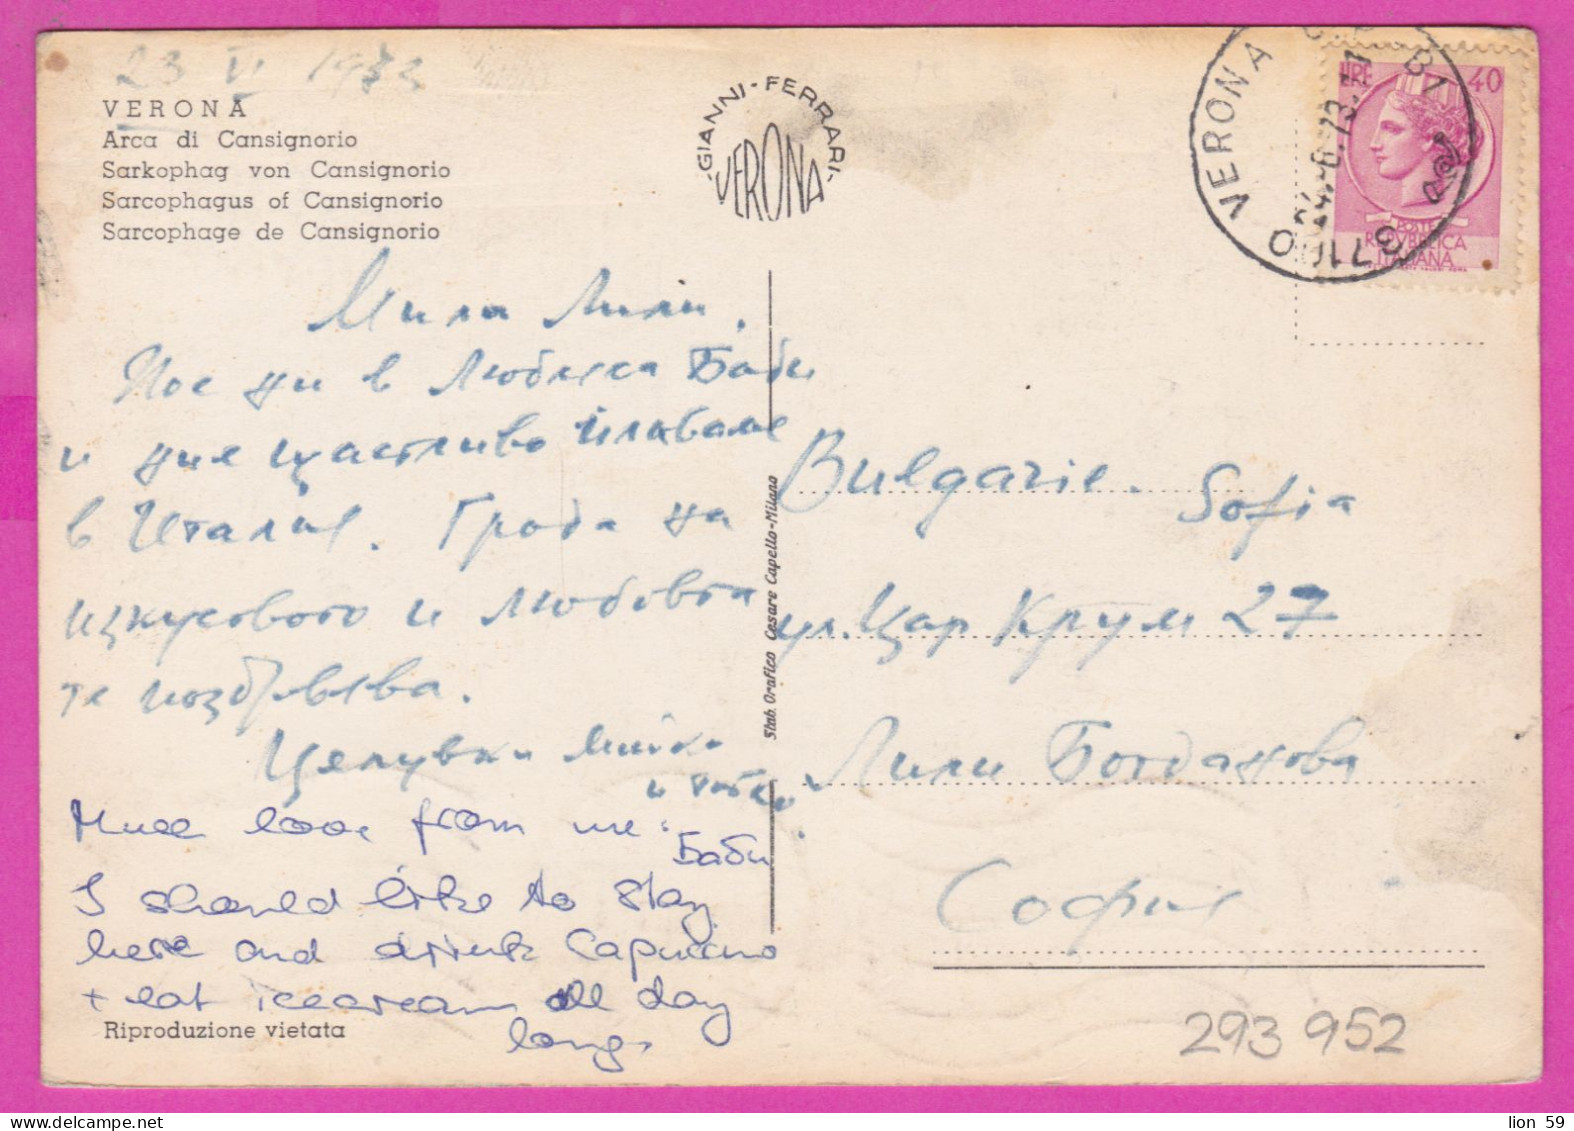 23 VI 1973
VERONA
Arca di Cansignorio
Sarkophag von Cansignorio
Sarcophagus of Cansignorio
Sarcophage de Cansignorio
GIANNI-FERRARI
VERONA
37100 VERONA
24.-6.73.
LIRE 40
POSTE
REPVBBLICA
ITALIANA
Мила Лили,
ни в Любляна Баби
и ние щастливо
в Италия. Града на
изкуството и любовта
те поздравява.
Целувки Майка
и татко.
Much love from me.
Баби
I should like to stay
here and drink Capuccino
+ eat icecream all day
long.
Riproduzione vietata
Stab. Grafico Cesare Capello-Milano
Bulgarie. Sofia
ул. Цар Крум 27
Лили Богданова
София
293 952
lion 59